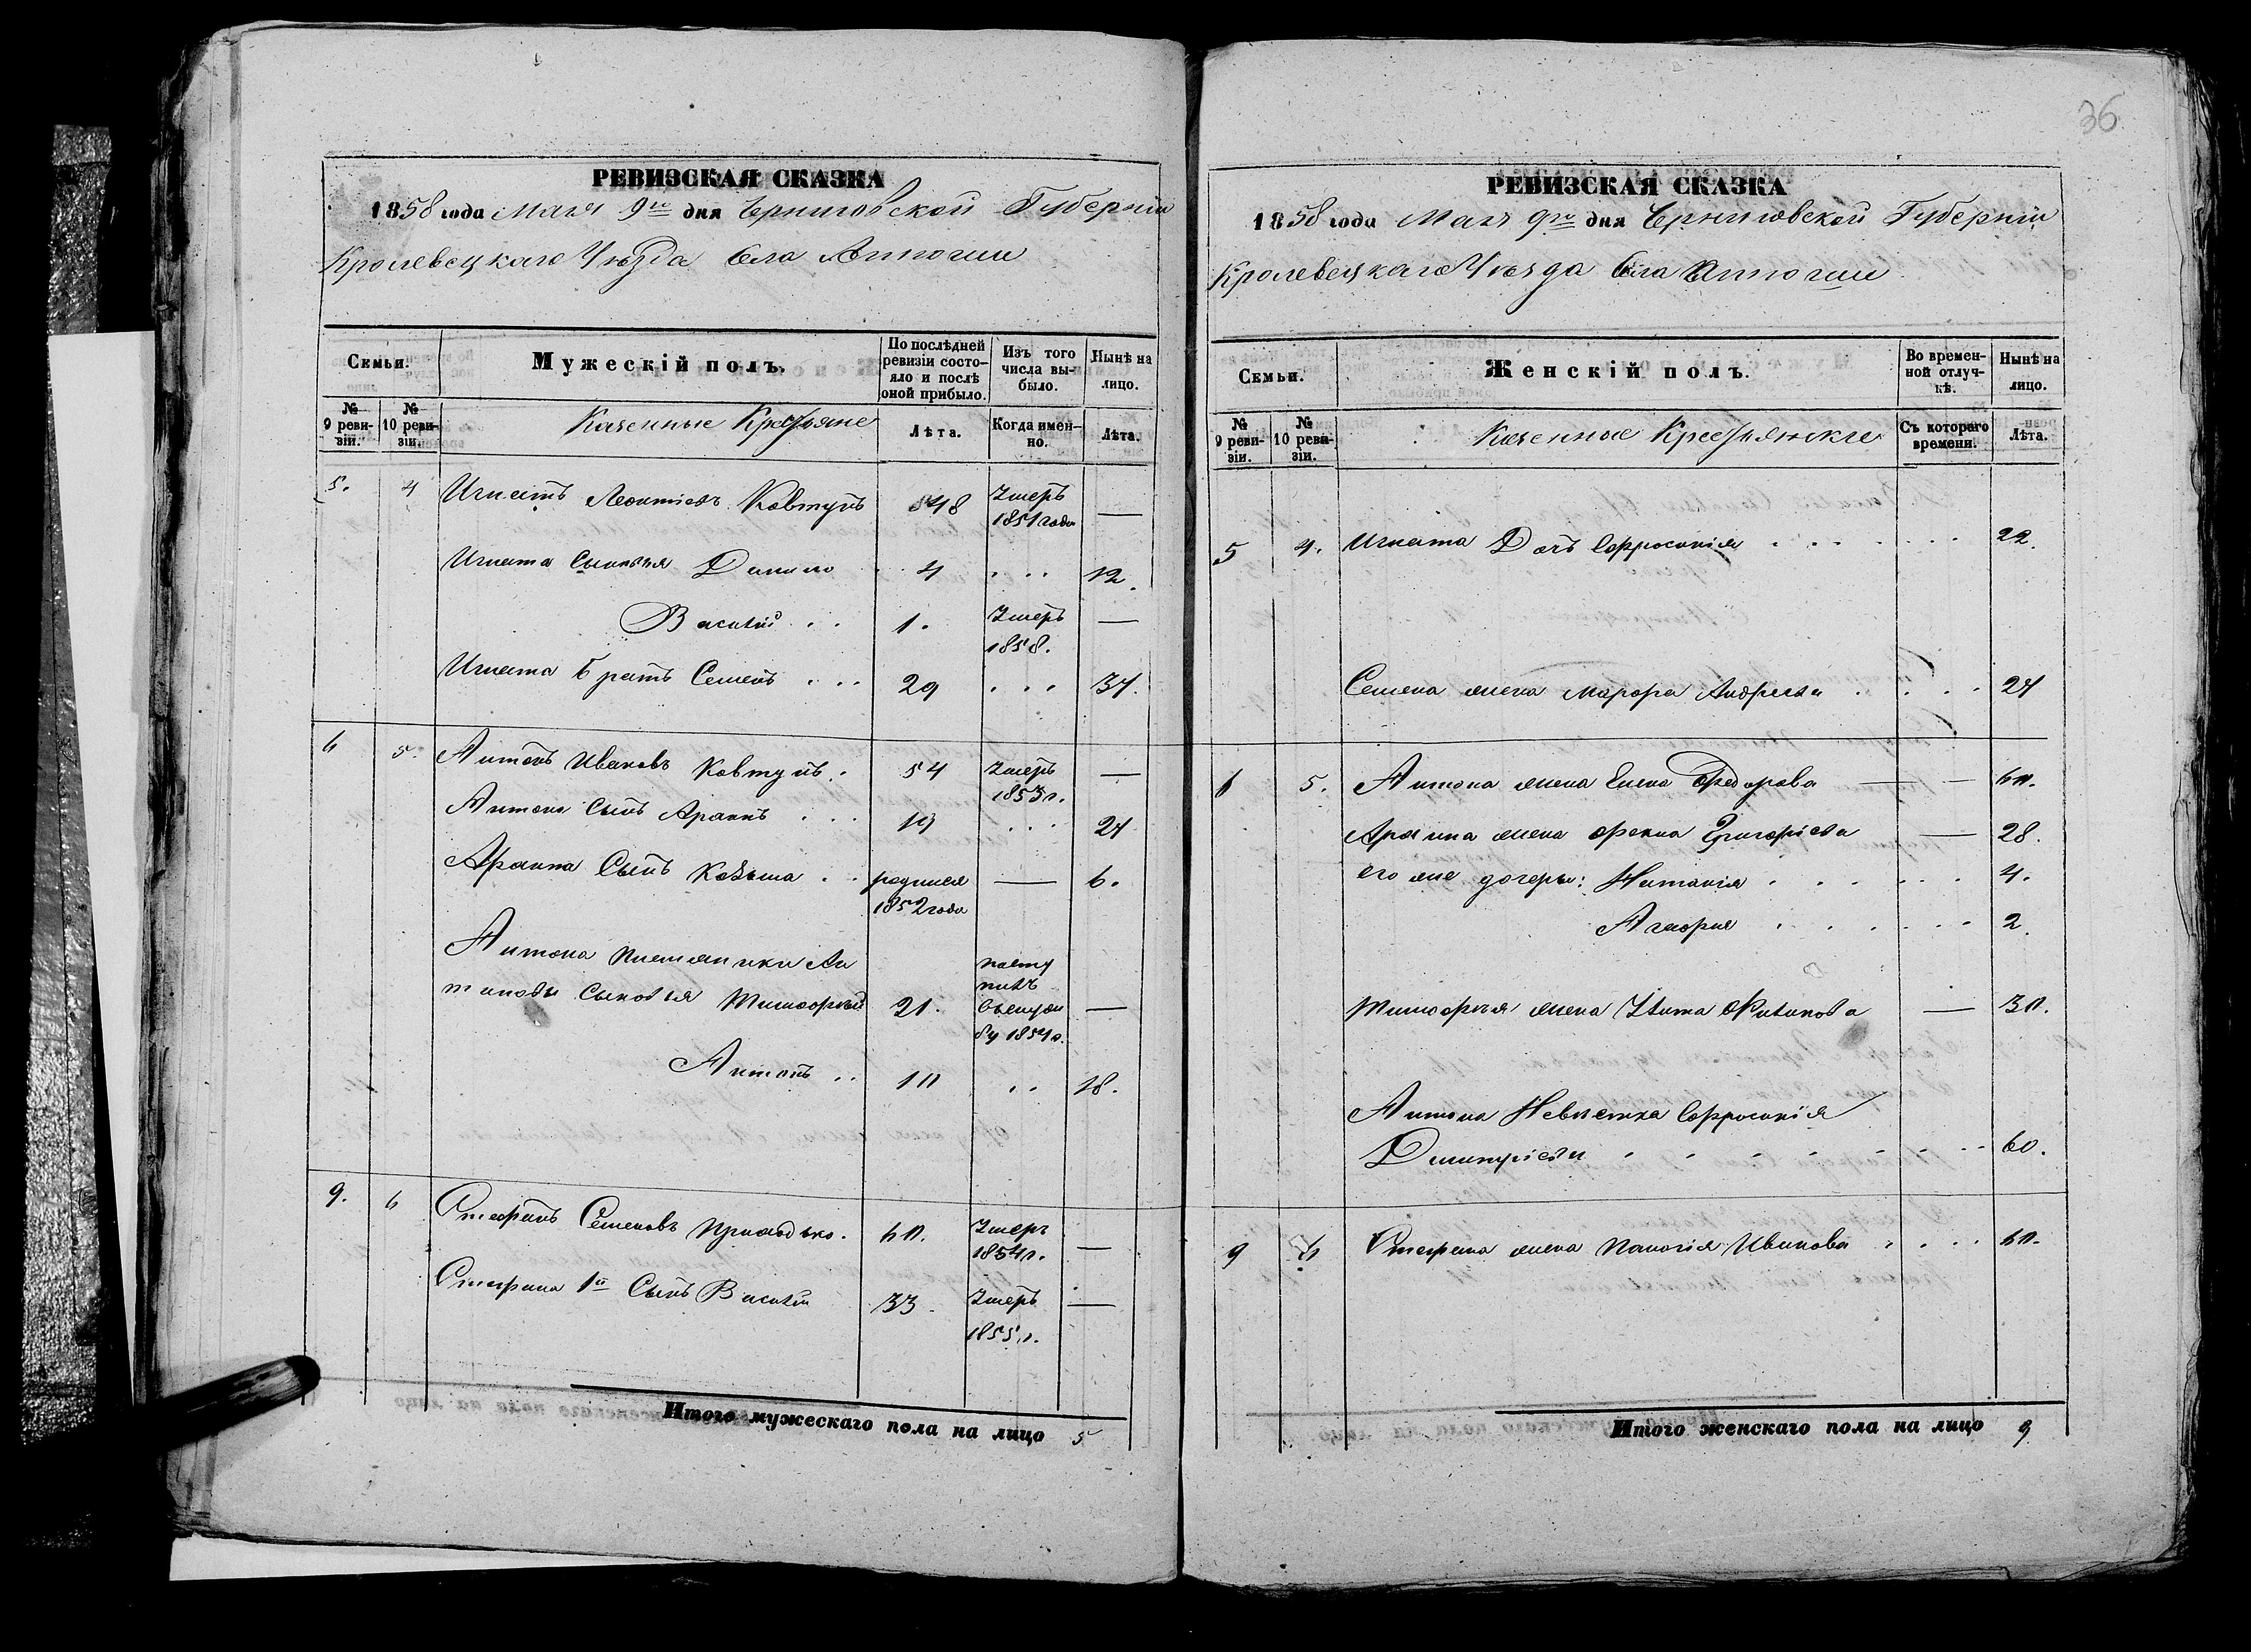 36
РЕВИЗСКАЯ СКАЗКА
1858 года Мая 9го дня Черниговской Губерніи
Кролевецкаго Уѣзда Села
Семьи.
Мужескій полъ.
По послѣдней ревизіи состояло и послѣ оной прибыло.
Изъ того числа выбыло.
Нынѣ на лицо.
№ 9 ревизіи.
№ 10 ревизіи.
Казенные Крестьяне
Лѣта.
Когда именно.
Лѣта.
5. 4 Игнатъ Леонтіевъ Ковтунъ 48 Умеръ 1851 года —
Игната Сыновья Данило 4 . . . 12.
Василій . . 1. Умеръ 1858. —
Игната Братъ Семенъ . . . 29 . . . 37.
6 5. Антонъ Ивановъ Ковтунъ . 54 Умеръ 1853 г. —
Антона Сынъ . . . 19 . . . 27
Сынъ Козьма . . родился 1852 года — 6.
Антона племянники Ан
тоновы Сыновья Тимофей 21. посту
пилъ
1854 г. —
Антонъ . . 10 . . 18.
9. 6 Стефанъ Семеновъ Приходько. 60. Умеръ 1854 г. —
Стефана 1й Сынъ Василій 33. Умеръ 1855 г. —
Итого мужескаго пола на лицо 5
РЕВИЗСКАЯ СКАЗКА
1858 года Мая 9го дня Черниговской Губерніи
Кролевецкаго Уѣзда Села
Семьи.
Женскій полъ.
Во временной отлучкѣ.
Нынѣ на лицо.
№ 9 ревизіи.
№ 10 ревизіи.
Казенные Крестьянки
Съ котораго времени.
Лѣта.
5 4. Игната Дочь Ефросинія . . . . . . . 22.
Семена жена Марфа Андреева . . . . 27
6 5. Антона жена Елена Федорова — — 60.
жена Григоріева — 28.
его же дочери: Наталія . . . . . . . 4.
. . . . . . 2.
Тимофея жена — 30.
Антона Невѣстка Ефросинія
Димитріева . . . . . . . . 60.
9 6 Стефана жена Иванова . . . . 60.
Итого женскаго пола на лицо 9